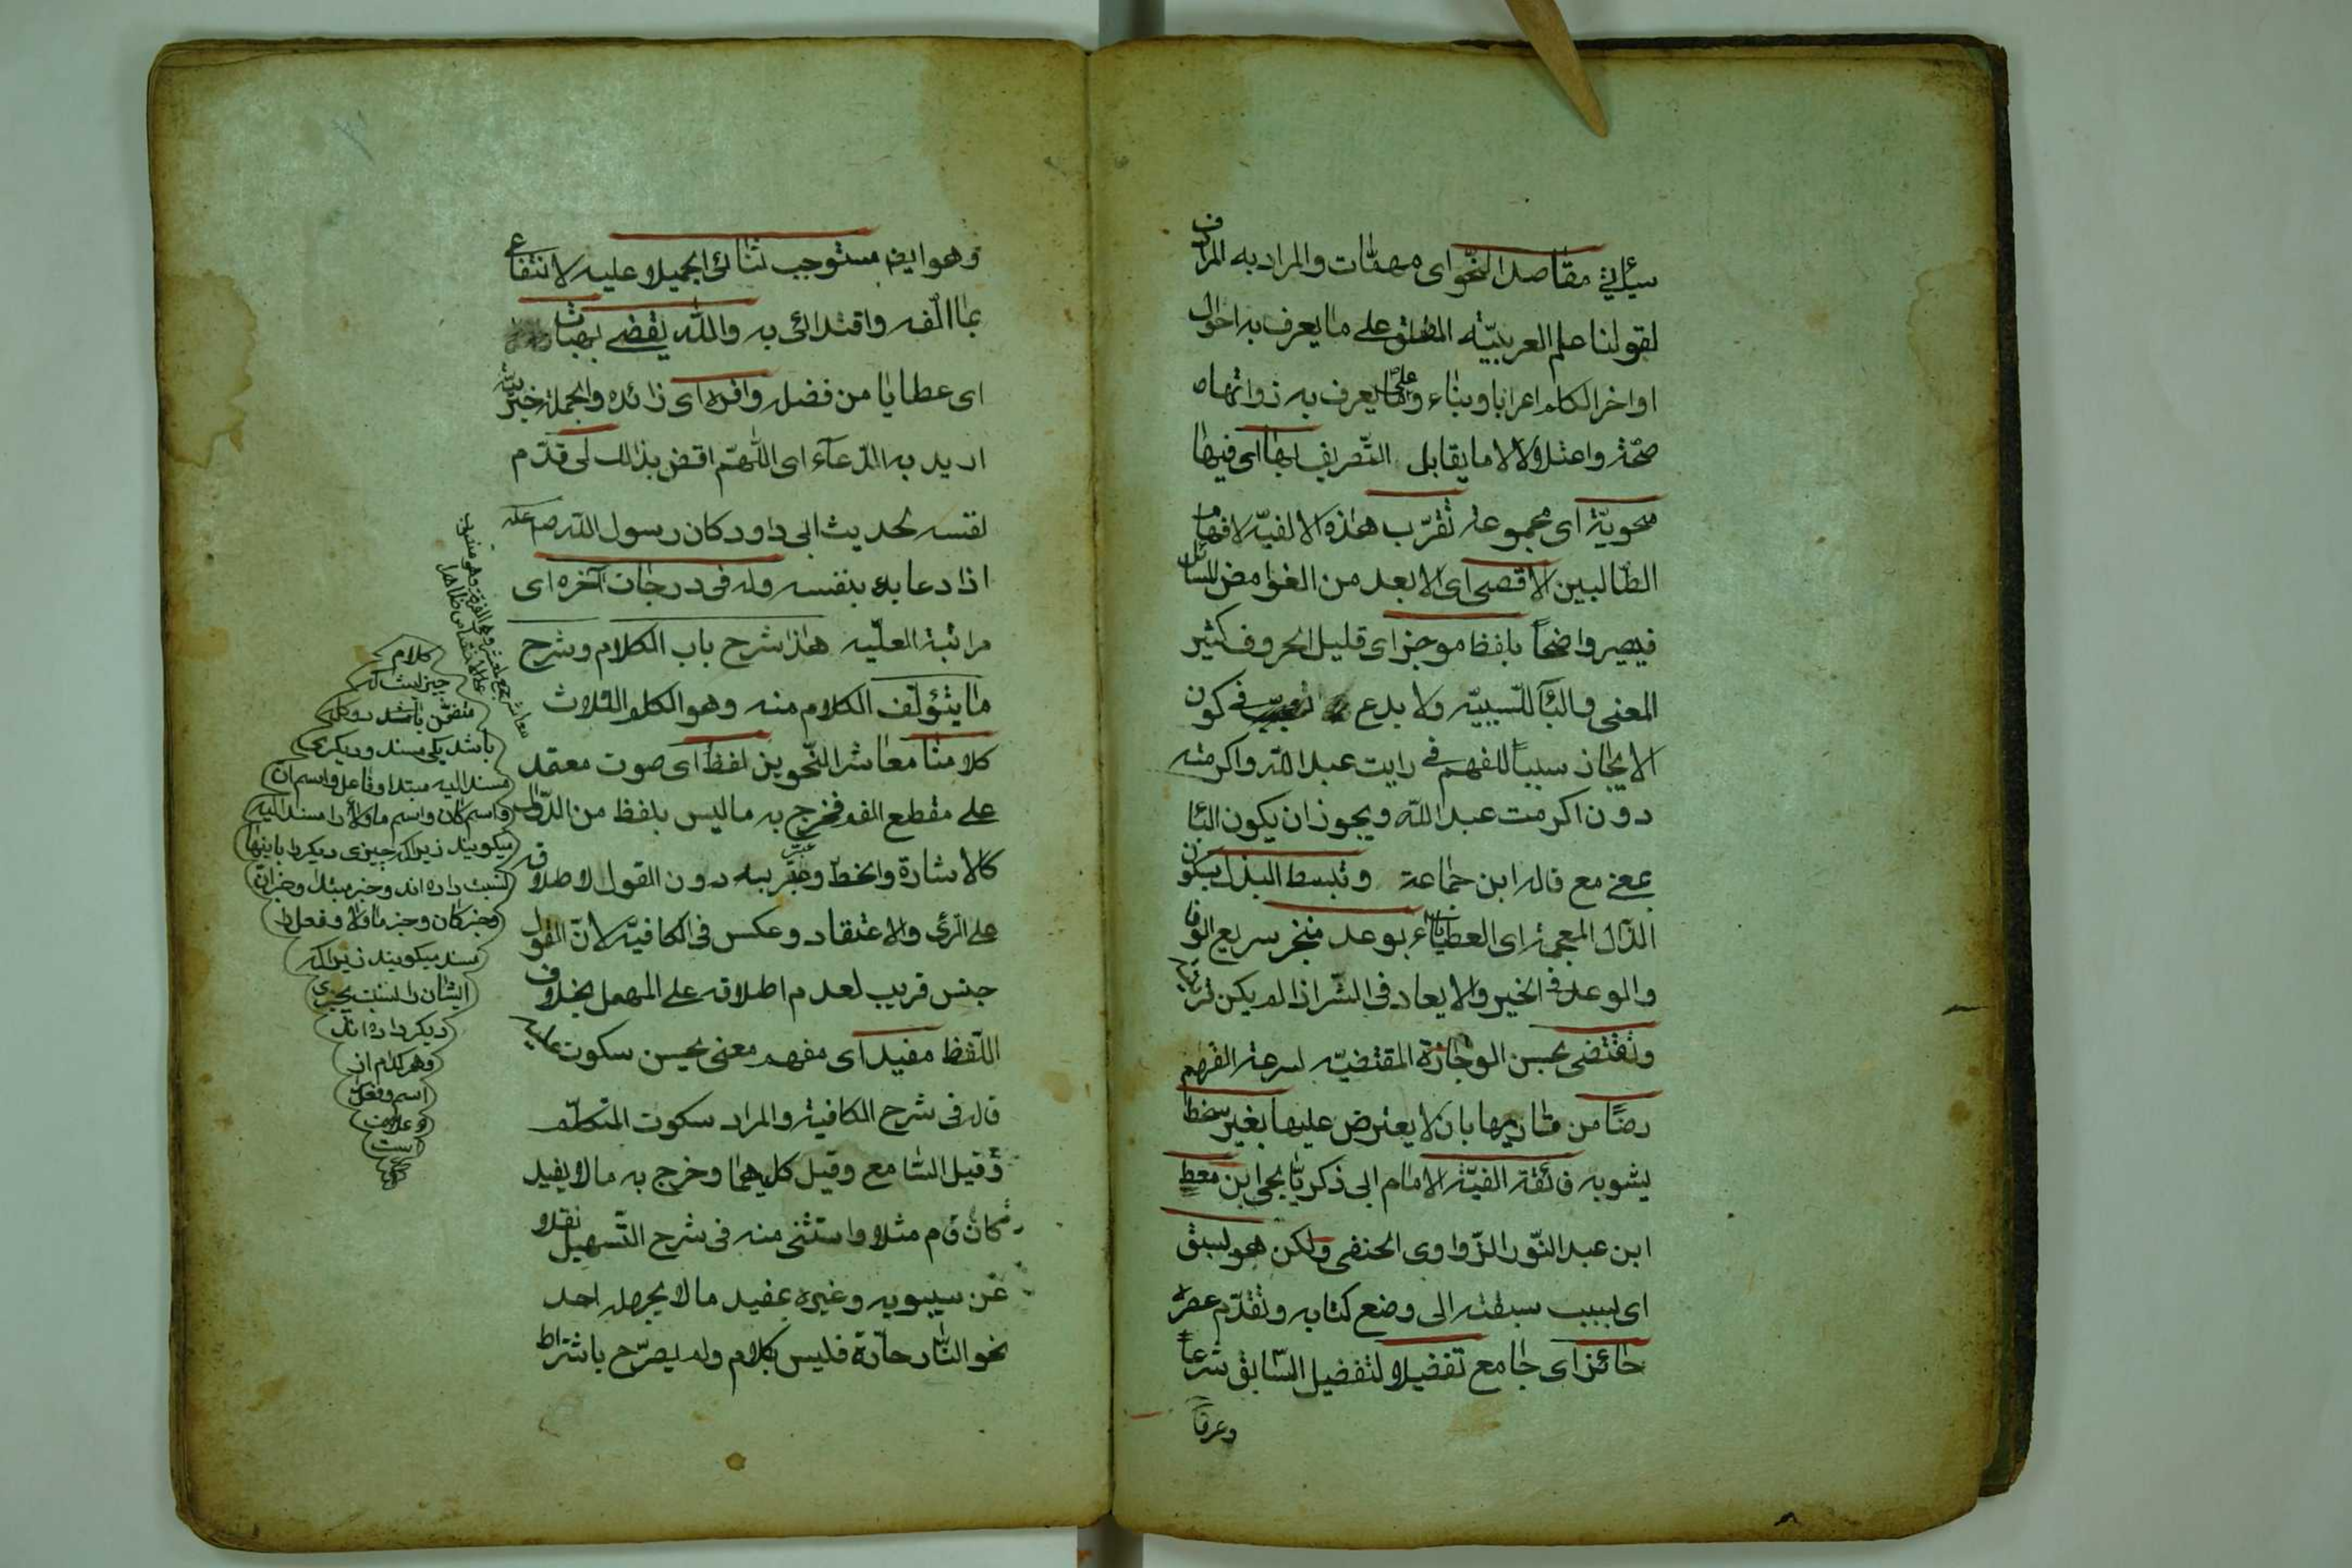 سيأتي مقاصد النّحو اى مهمّات والمراد به المرادف
لقولنا علم العربيّه المطلق على ما يعرف به احوال
اواخر الكلم اعرابا وبناء وعلى ما يعرف به ذواتها
صحّة واعتلالا لا ما يقابل التّصريف بها اى فيها
محويّة اى مجموعة تقرّب هذه الالفيّه لافهام
الطّالبين الاقصى اى الابعد من الغوامض للسائل
فيصير واضحاً بلفظ موجز اى قليل الحروف كثير
المعنى والبآ للسّببيّه ولا بدع فى كون
الايجاز سبباً للفهم فى رايت عبد اللّه واكرمته
دون اكرمت عبد اللّه ويجوز ان يكون البآ
بمعنى مع قاله ابن جماعة وتبسط البذل بسكون
الذّال المعجمة اى العطاء بوعد منجز سريع الوفا
والوعد فى الخير والايعاد فى الشّر اذا لم يكن قرينة
وتقتضى بحسن الوجازة المقتضيّه لسرعة الفهم
رضًا من قاريها بان لا يعترض عليها بغير سخط
يشوبه فائقة الفيّة الامام ابى ذكريّا يحيى ابن معط
ابن عبد النّور الزّواوى الحنفى ولكن هو لسبق
اى بسبب سبقته الى وضع كتابه وتقدّم عصره
حائز اى جامع تفضيلا لتفضيل السّابق شرعاً
وعرفاً
وهو ايضا مستوجب ثنائى الجميلا عليه لانتفاعى
بما الّفه واقتدائى به واللّه يقضى بهبات
اى عطايا من فضله وافره اى زائده والجملة خبريّة
اريد به الدّعآء اى اللّهمّ اقض بذالك لى قدّم
لفنسه لحديث ابى داود كان رسول اللّه صلى
اذا دعا بدء بنفسه وله فى درجات آلاخره اى
مراتبة العلّيه هذا شرح باب الكلام وشرح
ما يتؤلّف الكلام منه وهو الكلم الثلاث
كلامنا معاشر النّحوين لفظ اى صوت معتمد
على مقطع الفم فخرج به ما ليس بلفظ من الدّوال
كالاشارة والخطّ وعبّر به دون القول لاطلاقه
على الرّى والاعتقاد وعكس فى الكافيّه لانّ القول
جنس قريب لعدم اطلاقه على المهمل بخلاف
اللّفظ مفيد اى مفهم معنى يحسن سكوت عليه
قاله فى شرح الكافية والمراد سكوت المتكلّم
وقيل السّامع وقيل كليهما وخرج به ما لا يفيد
كان قام مثلا واستثنى منه فى شرح التّسهيل نقلا
عن سيبويه وغيره بمفيد ما لا يجهله احد
نحو النّار حارّة فليس بكلام ولم يصرّح باشتراط
كلام
چيزيست كه
متضمّن باشد دو كلمه
باشد يكى مسند وديكرى
مسند اليه مبتدا وفاعل واسم انّ
واسم كان واسم ما ولا را مسند اليه
ميكويند زيراكه چيزى ديكر با اينها
نسبت داده اند وخبر مبتدا وخبر انّ
وخبر كان وخبر ما ولا وفعل را
مسند ميكويند زيراكه
ايشان را نسبت بچيزى
ديكر داده اند
وهر كدام از
اسم وفعل
و علامت
است